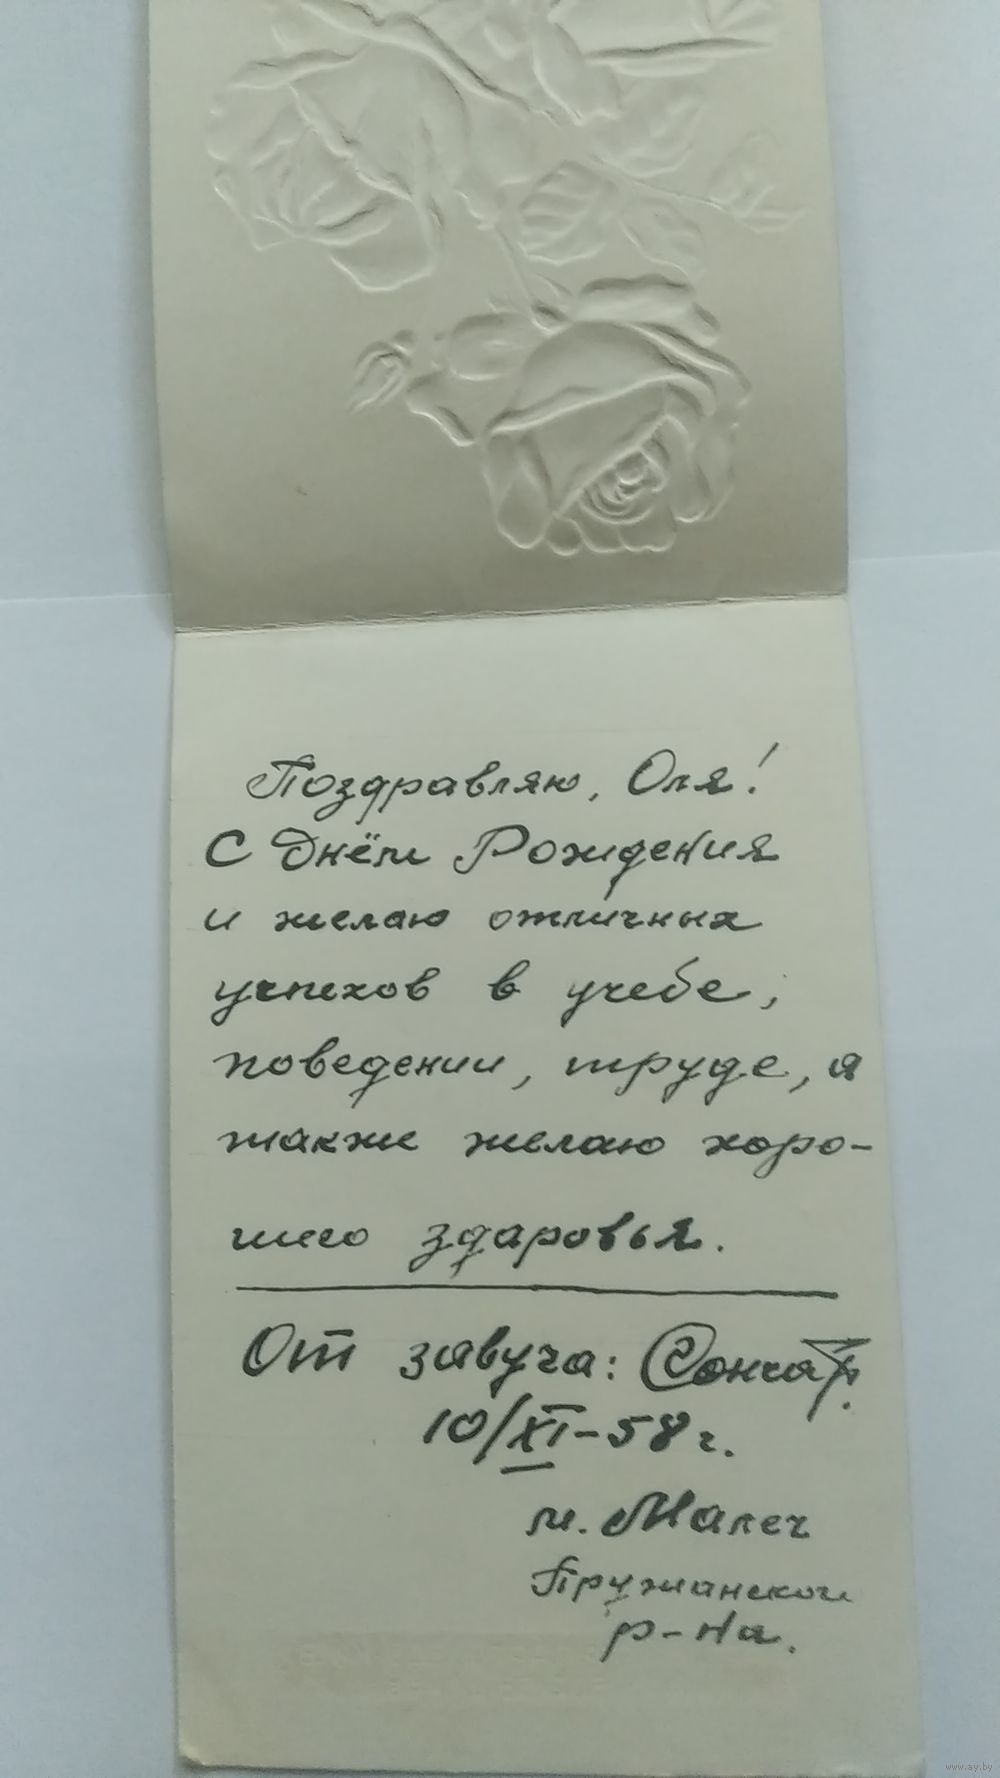 Поздравляю, Оля!
С Днём Рождения
и желаю отличных
успехов в учебе,
поведении, труде, а
также желаю хоро-
шего здаровья.
От завуча:
10/XI-58 г.
м. Малеч
Пружанского
р-на.
www.ay.by